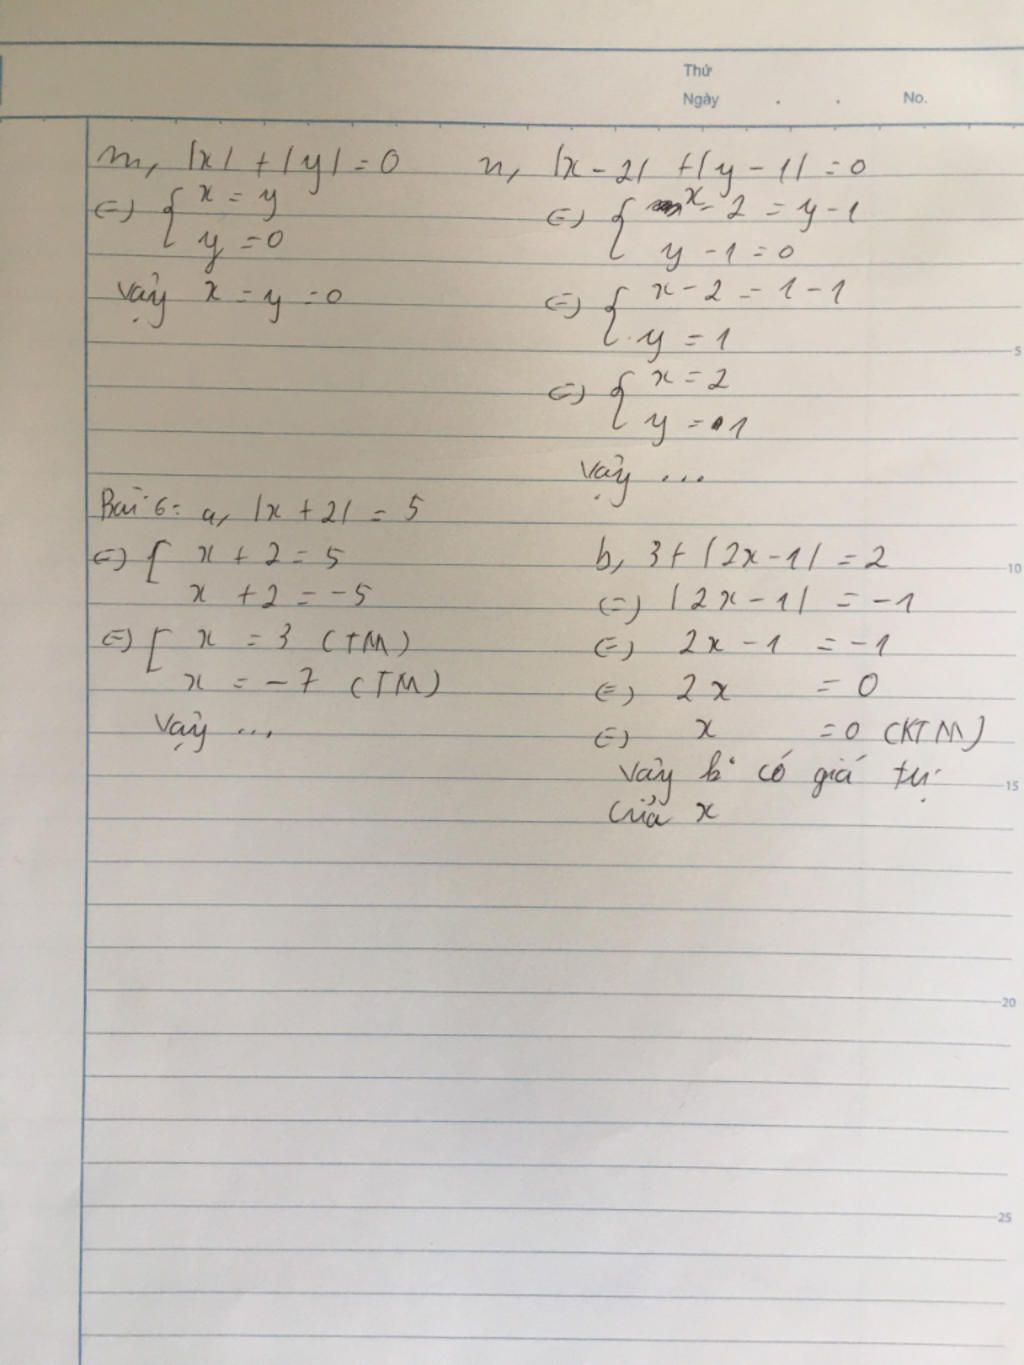 Thứ
Ngày . . No.
m, |x| + |y| = 0
<=> { x = y
y = 0
Vậy x = y = 0
n, |x - 2| + |y - 1| = 0
<=> { x - 2 = y - 1
y - 1 = 0
<=> { x - 2 = 1 - 1
y = 1
<=> { x = 2
y = 1
Vậy ...
5
Bài 6: a, |x + 2| = 5
<=> [ x + 2 = 5
x + 2 = -5
<=> [ x = 3 (TM)
x = -7 (TM)
Vậy ...
b, 3 + |2x - 1| = 2
10
<=> |2x - 1| = -1
<=> 2x - 1 = -1
<=> 2x = 0
<=> x = 0 (KTM)
Vậy k° có giá trị
15
của x
20
25